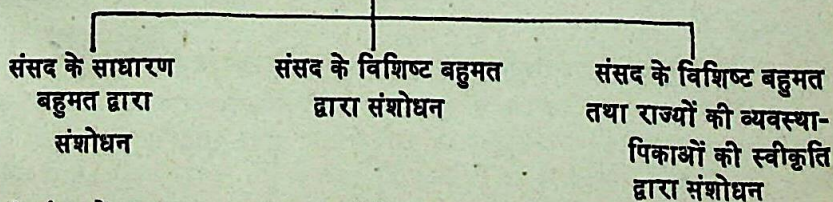 संसद के साधारण
बहुमत द्वारा
संशोधन
संसद के विशिष्ट बहुमत
द्वारा संशोधन
संसद के विशिष्ट बहुमत
तथा राज्यों की व्यवस्था-
पिकाओं की स्वीकृति
द्वारा संशोधन